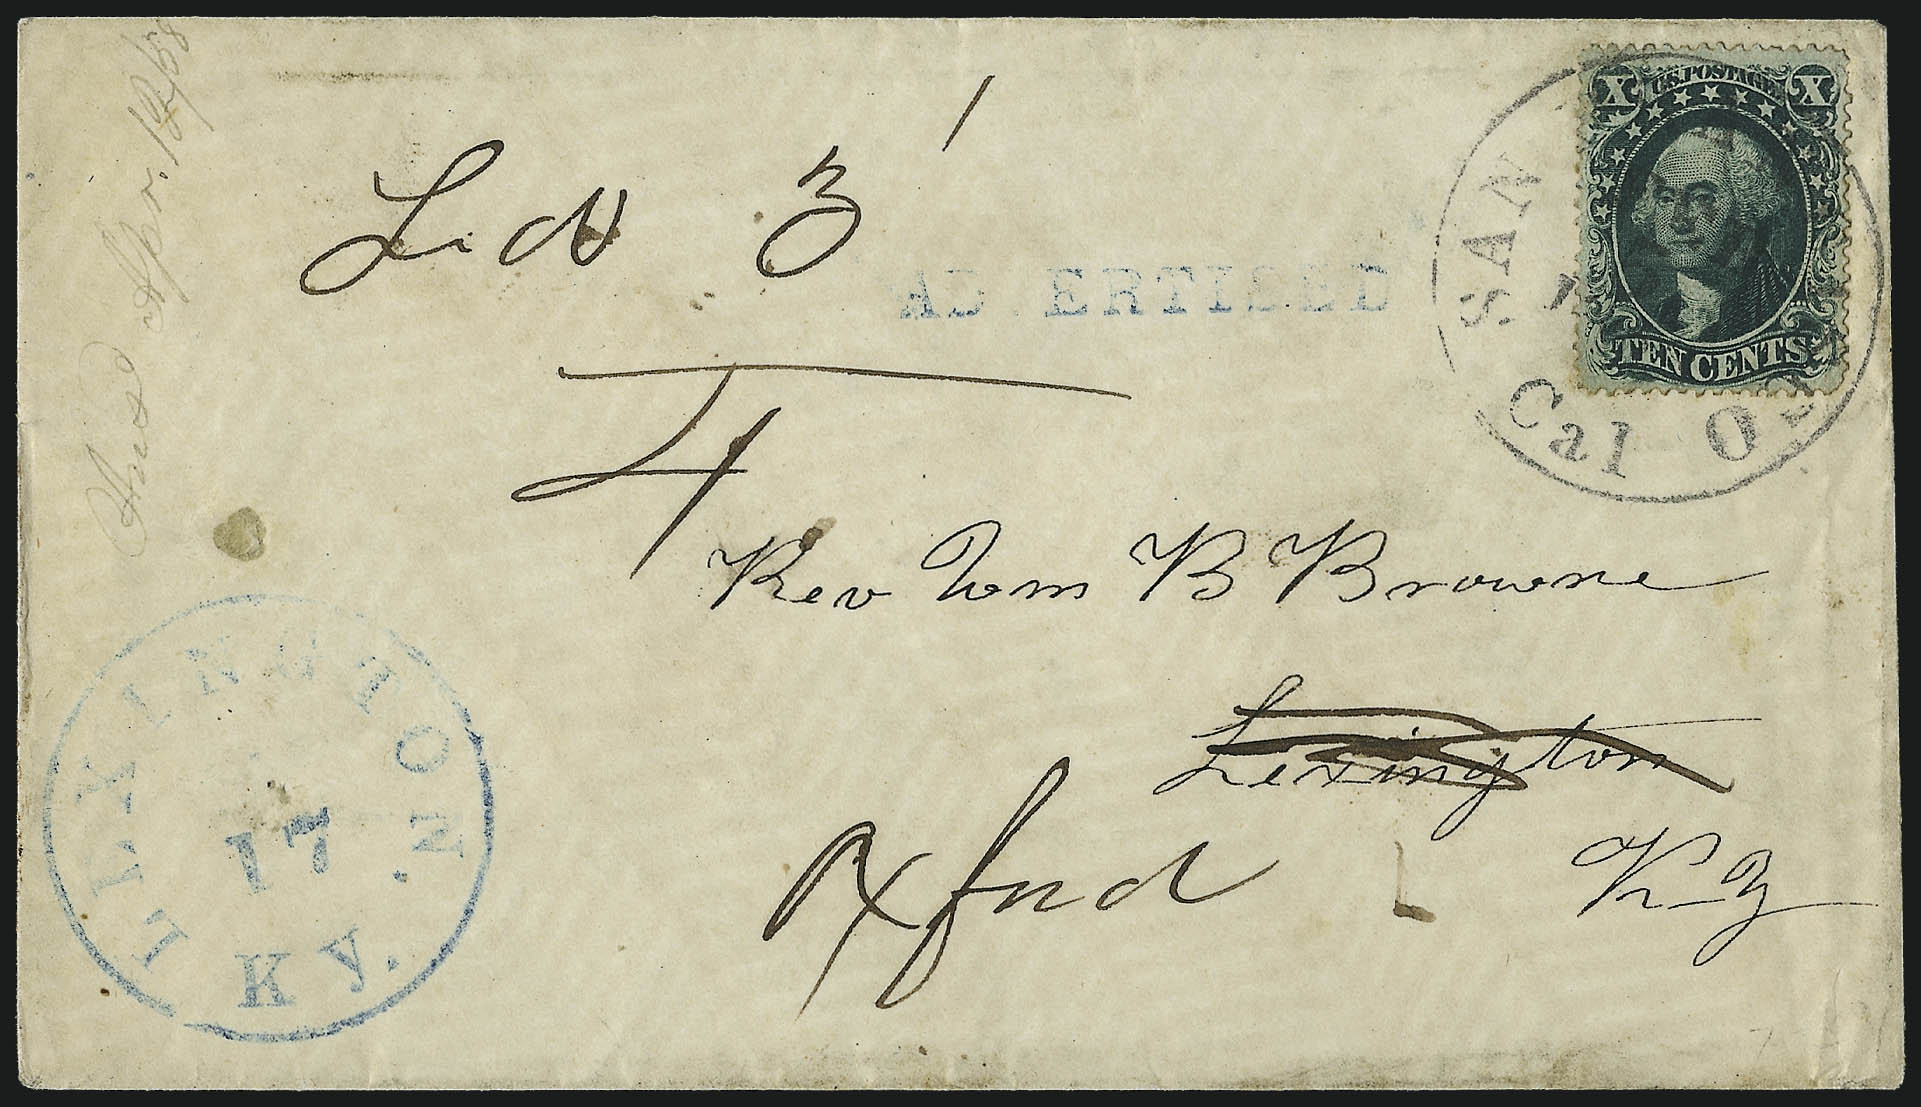 Ansd Apr. 18/58
Ld N 3
ADVERTISED
X U.S. POSTAGE X
TEN CENTS
SAN
Cal
4
Rev Wm B Browne
Lexington
Oxford Ky
LEXINGTON.
17
Ky.